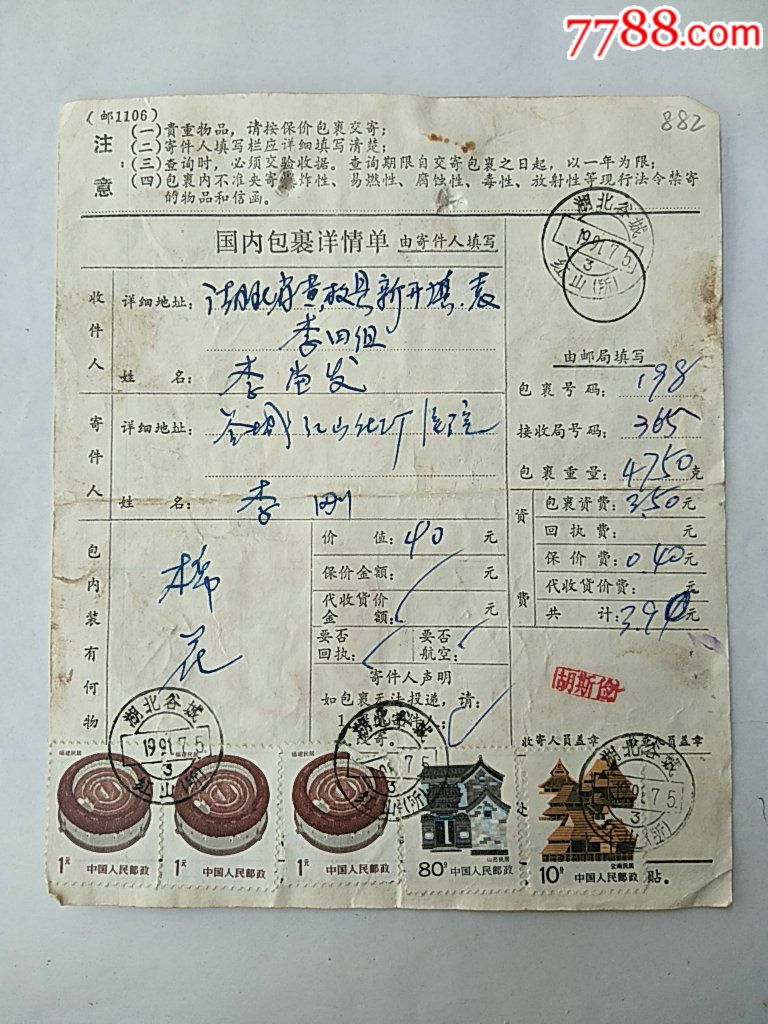 7788.com
(邮1106)
882
注意:
(一)貴重物品，请按保价包裹交寄;
(二)寄件人填写栏应详细填写清楚;
(三)查询时，必须交验收据。查询期限自交寄包裹之日起，以一年为限;
(四)包裹内不准夹寄爆炸性、易燃性、腐蚀性、毒性、放射性等现行法令禁寄
的物品和信函。
湖北谷城
1991.7.5
3
红山(所)
国内包裹详情单 由寄件人填写
收件人
详细地址: 湖北省黄梅县新开镇
李四组
姓 名: 李当发
寄件人
详细地址: 谷城红山化工厂医院
姓 名: 李刚
由邮局填写
包裹号码: 198
接收局号码: 365
包裹重量: 4750克
资费
包裹资费: 3.50元
回执费: 元
保价费: 0.40元
代收货价费: 元
共 计: 3.90元
包内装有何物
棉花
价 值: 40 元
保价金额: 元
代收货价
金 额: 元
要否
回执:
要否
航空:
寄件人声明
如包裹无法投递，请:
胡斯俭
收寄人员盖章
湖北谷城
1991.7.5
3
红山(所)
湖北谷城
1991.7.5
3
红山(所)
湖北谷城
1991.7.5
3
红山(所)
福建民居
1元
中国人民邮政
福建民居
1元
中国人民邮政
福建民居
1元
中国人民邮政
山西民居
80分
中国人民邮政
云南民居
10分
中国人民邮政
处
贴。